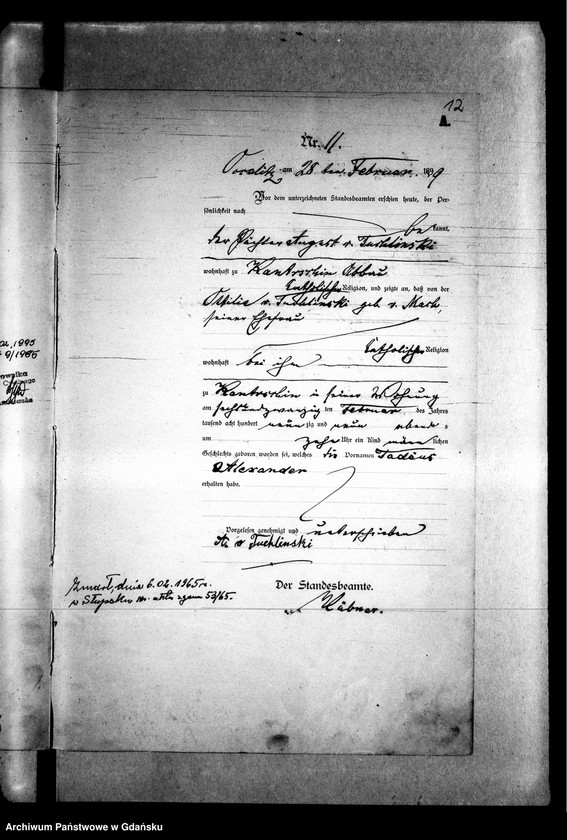 12
A.
Nr. 11.
am 28 ten Februar 1899
Vor dem unterzeichneten Standesbeamten erschien heute, der Per-
sönlichkeit nach
be kannt,
der Pächter August v. Tuchlinski
wohnhaft zu Kantrschin Abbau
katholischer Religion, und zeigte an, daß von der
Ottilie v. Tuchlinski geb. v. Mach,
seiner Ehefrau
katholischer Religion
wohnhaft bei ihm
zu Kantrschin in seiner Wohnung
am sechsundzwanzig ten Februar, des Jahres
tausend acht hundert neun zig und neun abends
um zehn Uhr ein Kind männ lichen
Geschlechts geboren worden sei, welches die Vornamen Tadäus
Alexander
erhalten habe.
Vorgelesen, genehmigt und unterschrieben
A. v Tuchlinski
Der Standesbeamte.
Hübner.
Zmarł, dnia 6.02.1965 r.
w Słupsku nr. aktu zgonu 53/65.
Archiwum Państwowe w Gdańsku